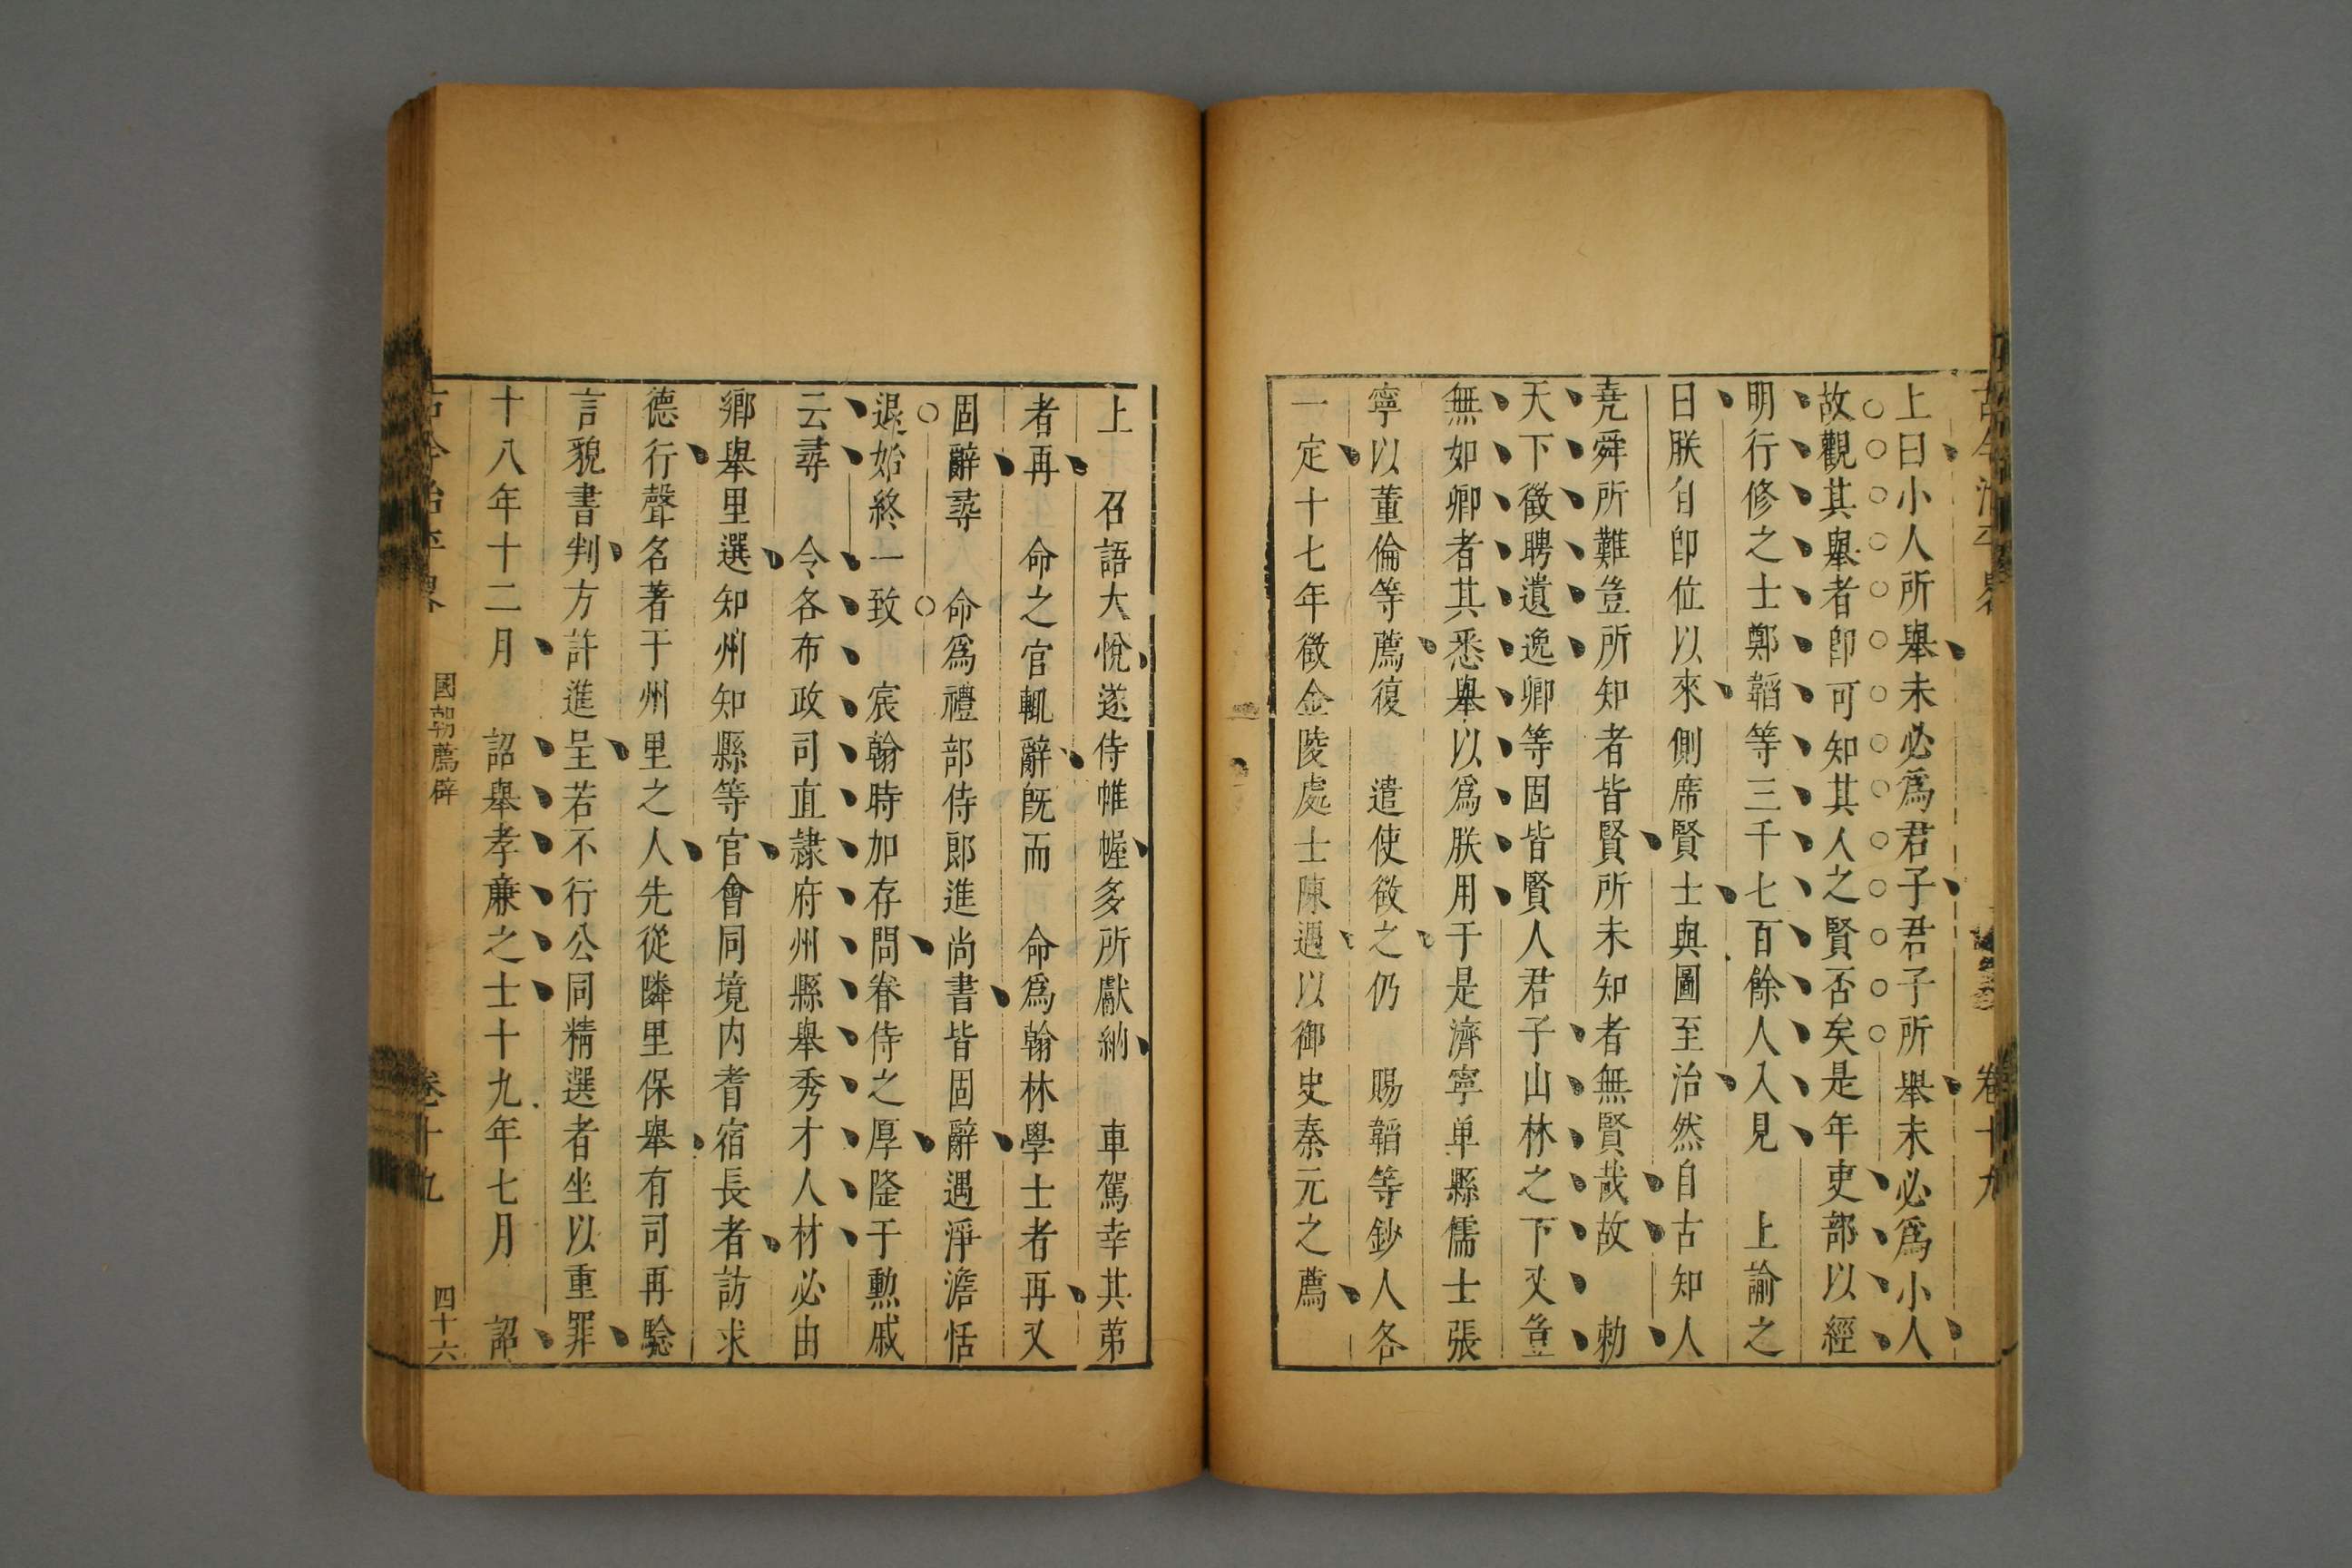 古今治平畧 卷十九
上曰小人所舉未必爲君子君子所舉未必爲小人
故觀其舉者卽可知其人之賢否矣是年吏部以經
明行修之士鄭韜等三千七百餘人入見 上諭之
曰朕自卽位以來側席賢士與圖至治然自古知人
堯舜所難豈所知者皆賢所未知者無賢哉故 勅
天下徵聘遺逸卿等固皆賢人君子山林之下又豈
無如卿者其悉舉以爲朕用于是濟寧单縣儒士張
寧以董倫等薦復 遣使徵之仍 賜韜等鈔人各
一定十七年徵金陵處士陳遇以御史秦元之薦
上 召語大悅遂侍帷幄多所獻納 車駕幸其第
者再 命之官輒辭旣而 命爲翰林學士者再又
固辭尋 命爲禮部侍郎進尚書皆固辭遇淨澹恬
退始終一致 宸翰時加存問眷侍之厚隆于勲戚
云尋 令各布政司直隷府州縣舉秀才人材必由
鄉舉里選知州知縣等官會同境内耆宿長者訪求
德行聲名著于州里之人先從隣里保舉有司再驗
言貌書判方許進呈若不行公同精選者坐以重罪
十八年十二月 詔舉孝亷之士十九年七月 詔
古今治平畧 國朝薦辟 卷十九 四十六